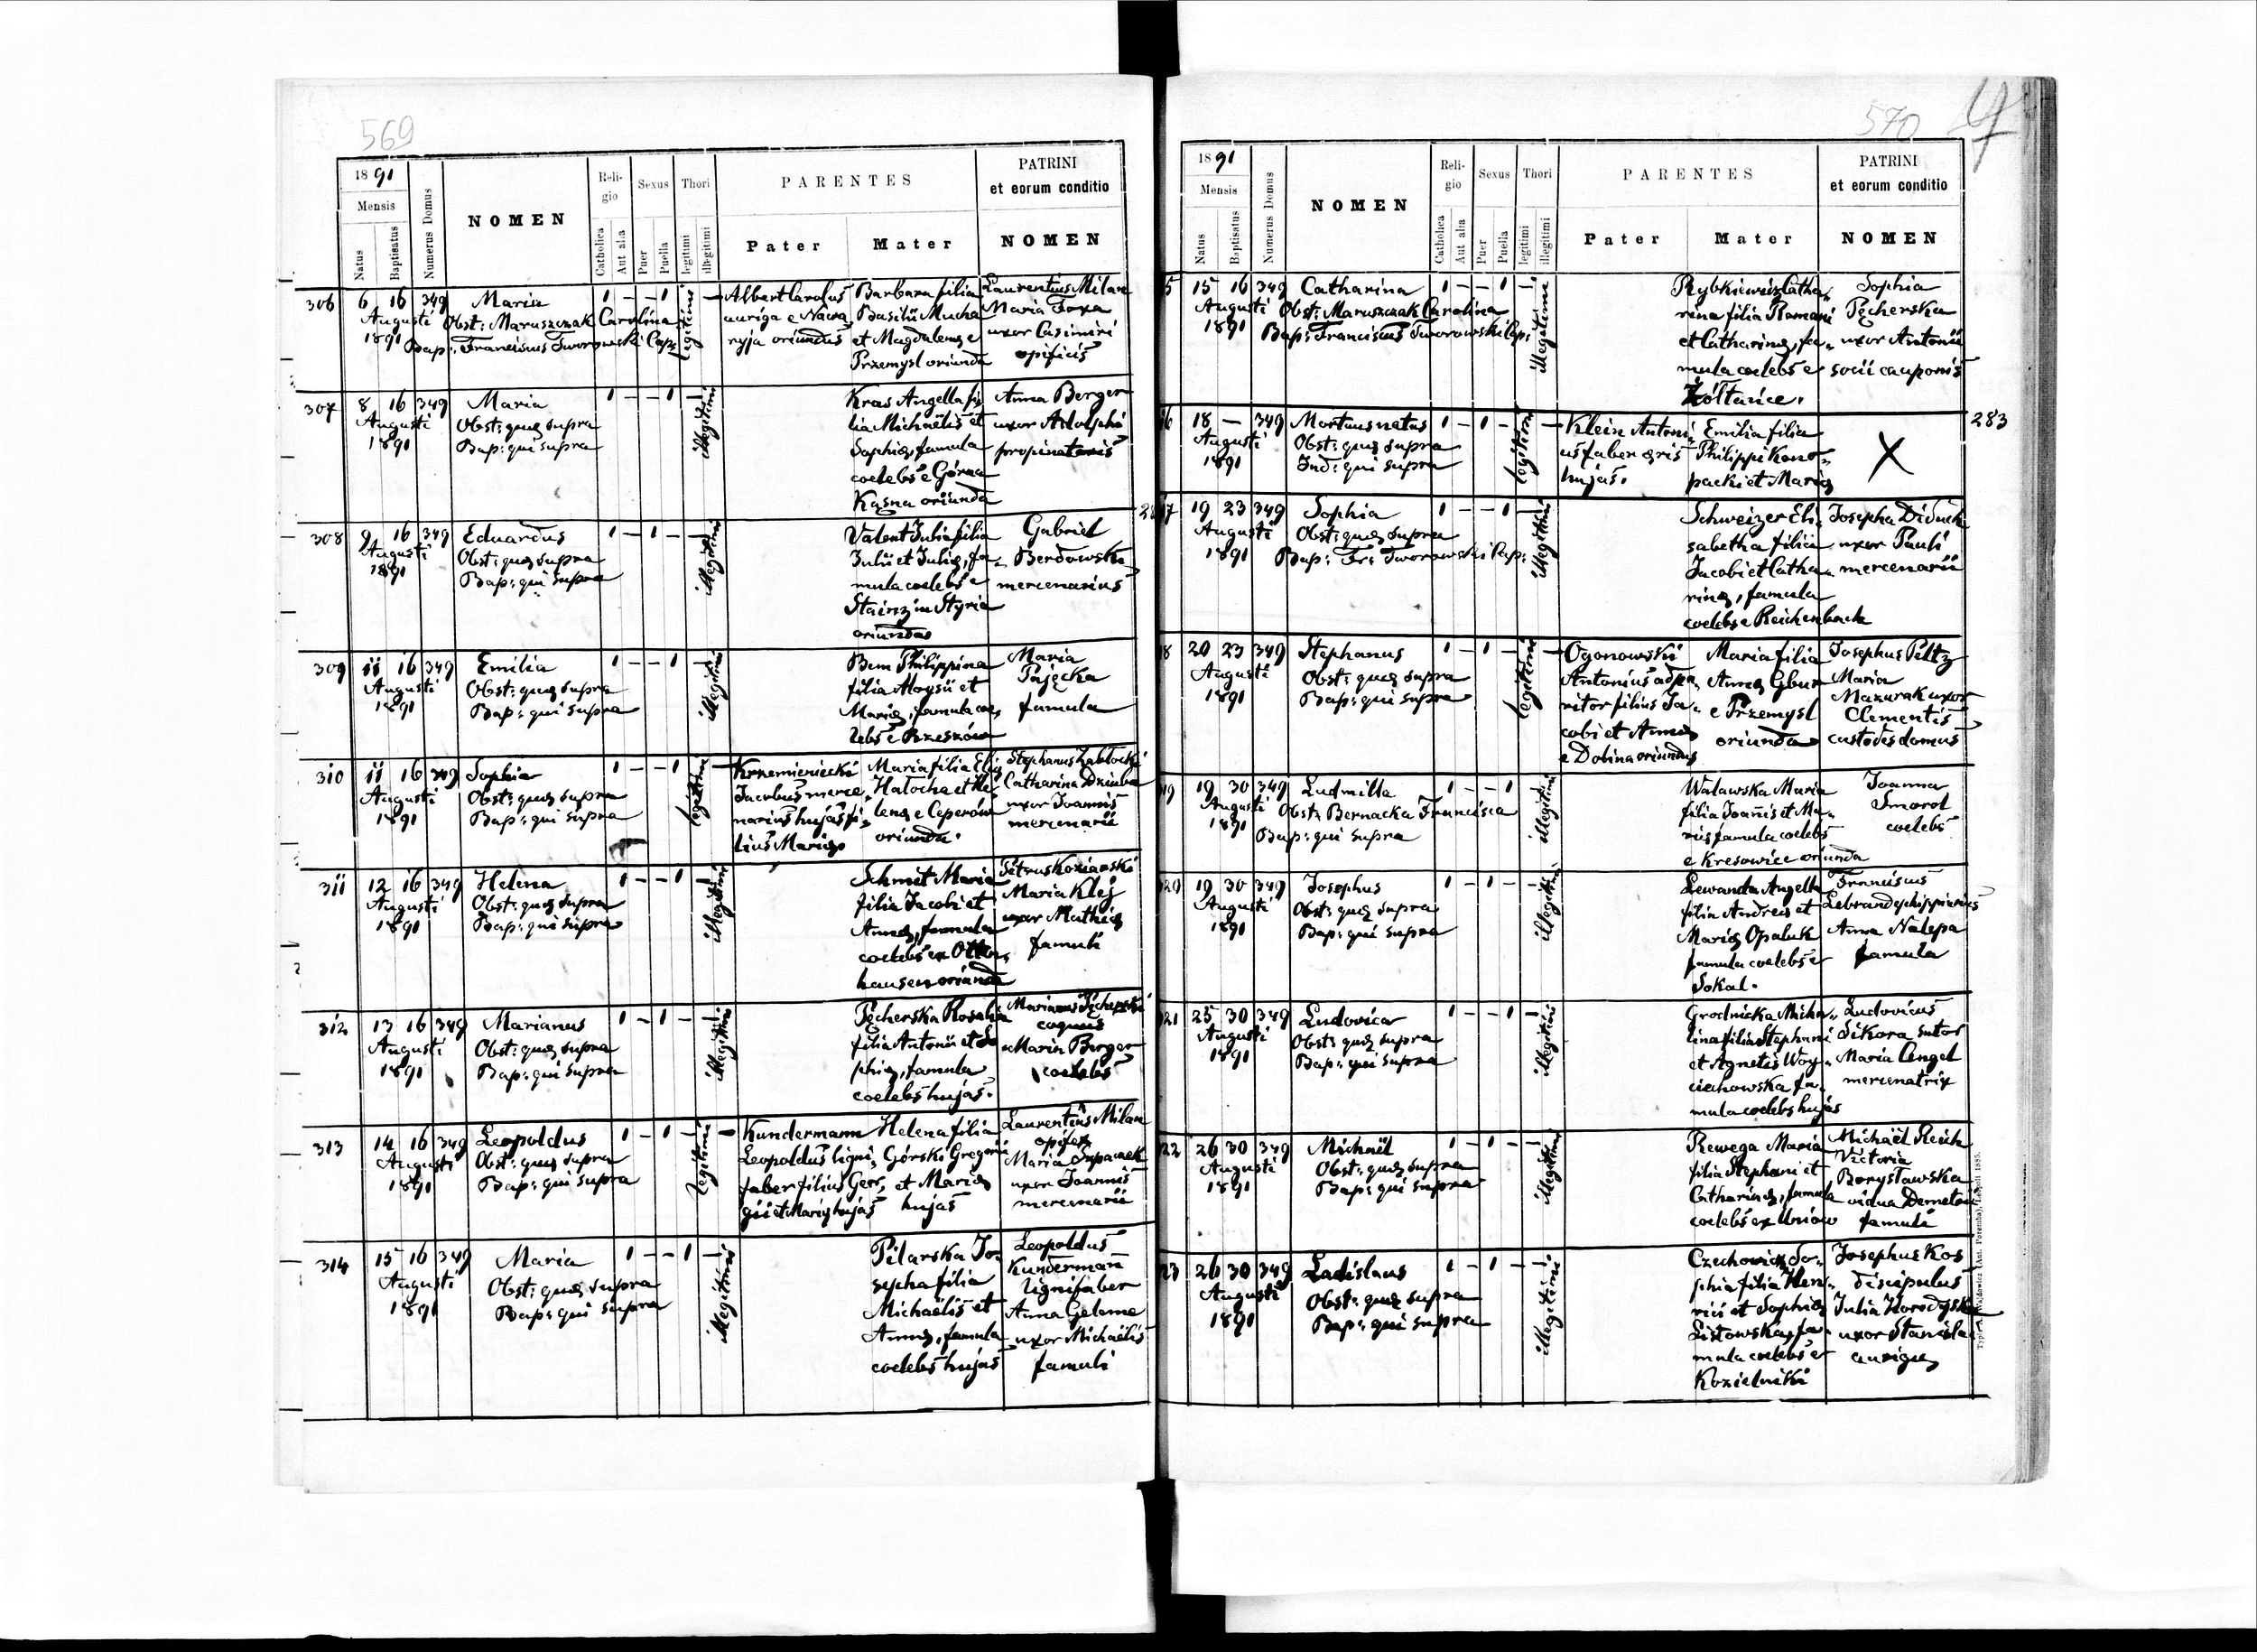 569
1891
Mensis
Natus
Baptisatus
Numerus Domus
NOMEN
Religio
Catholica
Aut alia
Sexus
Puer
Puella
Thori
legitimi
illegitimi
PARENTES
Pater
Mater
PATRINI
et eorum conditio
NOMEN
306 6 16 349 Maria 1 – – 1 legitimi
Augusti Obst: Maruszczak Carolina
1891 Bap: Franciscus Tworowski Cap:
Albert Carolus
auriga e Nawa
ryja oriundus
Barbara filia
Basilii Mucha
et Magdalenę e
Przemysl oriunda
Laurentius Milan
Maria Foxa
uxor Casimiri
opificis
307 8 16 349 Maria 1 – – 1 illegitimi
Augusti Obst: quę supra
1891 Bap: qui supra
Kras Angella fi
lia Michaëlis et
Sophię, famula
coelebs e Górna
Kąsna oriunda
Anna Berger
uxor Adolphi
propinatoris
308 9 16 349 Eduardus 1 – 1 – illegitimi
Augusti Obst: quę supra
1891 Bap: qui supra
Valent Julia filia
Julii et Julię, fa
mula coelebs e
Stainz in Styria
oriundas
Gabriel
Berdowski
mercenarius
309 11 16 349 Emilia 1 – – 1 illegitimi
Augusti Obst: quę supra
1891 Bap: qui supra
Bem Philippina
filia Aloysii et
Marię, famula coe
lebs e Rzeszów
Maria
Pajęcka
famula
310 11 16 349 Sophia 1 – – 1 legitimi
Augusti Obst: quę supra
1891 Bap: qui supra
Krzemieniecki
Jacobus merce
narius hujas fi
lius Marię
Maria filia Elię
Hałocha et He
lenę e Ceperów
oriunda.
Stephanus Zabłocki
Catharina Dziuba
uxor Joannis
mercenarii
311 12 16 349 Helena 1 – – 1 illegitimi
Augusti Obst: quę supra
1891 Bap: qui supra
Schmit Maria
filia Jacobi et
Annę, famula
coelebs ex Otten
hausen oriunda
Petrus Koziarski
Maria Klej
uxor Mathię
famuli
312 13 16 349 Marianus 1 – 1 – illegitimi
Augusti Obst: quę supra
1891 Bap: qui supra
Pęcherska Rosalia
filia Antonii et So
phię, famula
coelebs hujas.
Marianus Pęcherski
coquus
Maria Berger
coelebs
313 14 16 349 Leopoldus 1 – 1 – legitimi
Augusti Obst: quę supra
1891 Bap: qui supra
Kundermann
Leopoldus ligni
faber filius Geor
gii et Marię hujas
Helena filia
Górski Gregorii
et Marię
hujas
Laurentius Milan
opifex
Maria Supanek
uxor Joannis
mercenarii
314 15 16 349 Maria 1 – – 1 illegitimi
Augusti Obst: quę supra
1891 Bap: qui supra
Pilarska Jo
sepha filia
Michaëlis et
Annę, famula
coelebs hujas
Leopoldus
Kundermañ
lignifaber
Anna Gelome
uxor Michaëlis
famuli
570
1891
Mensis
Natus
Baptisatus
Numerus Domus
NOMEN
Religio
Catholica
Aut alia
Sexus
Puer
Puella
Thori
legitimi
illegitimi
PARENTES
Pater
Mater
PATRINI
et eorum conditio
NOMEN
5 15 16 349 Catharina 1 – – 1 illegitimi
Augusti Obst: Maruszczak Carolina
1891 Bap: Franciscus Tworowski Cap:
Rybkiewicz Catha
rina filia Romani
et Catharinę, fa
mula coelebs e
Żółtańce.
Sophia
Pęcherska
uxor Antonii
socii cauponis
6 18 — 349 Mortuus natus 1 – 1 – legitimi
Augusti Obst: quę supra
1891 Ind: qui supra
Klein Antoni
us faber ęris
hujas.
Emilia filia
Philippi Kono
packi et Marię
X
283
7 19 23 349 Sophia 1 – – 1 illegitimi
Augusti Obst: quę supra
1891 Bap: Fr: Tworowski Cap:
Schweizer Eli
sabetha filia
Jacobi et Catha
rinę, famula
coelebs e Reichenbach
Josepha Diduch
uxor Pauli
mercenarii
18 20 23 349 Stephanus 1 – 1 – legitimi
Augusti Obst: quę supra
1891 Bap: qui supra
Ogonowski
Antonius adpa
ritor filius Ja
cobi et Annę
e Dolina oriundus
Maria filia
Annę Gbur
e Przemysl
oriunda
Josephus Piltz
Maria
Mazurak uxor
Clementis
custodis domus
19 19 30 349 Ludmilla 1 – – 1 illegitimi
Augusti Obst: Bernacka Francisca
1891 Bap: qui supra
Walawska Maria
filia Joañis et Ma
rię famula coelebs
e Kresowice oriunda
Joanna
Smorol
coelebs
20 19 30 349 Josephus 1 – 1 – illegitimi
Augusti Obst: quę supra
1891 Bap: qui supra
Lewanda Angella
filia Andreę et
Marię Opaluk
famula coelebs e
Sokal.
Franciscus
Anna Nalepa
famula
21 25 30 349 Ludovica 1 – – 1 illegitimi
Augusti Obst: quę supra
1891 Bap: qui supra
Grodnicka Micha
lina filia Stephani
et Agnetis Woy
ciechowska fa
mula coelebs hujas
Ludovicus
Sikora sutor
Maria Angel
mercenatrix
22 26 30 349 Michaël 1 – 1 – illegitimi
Augusti Obst: quę supra
1891 Bap: qui supra
Rewega Maria
filia Stephani et
Catharinę, famula
coelebs ex Uniów
Michaël Reich
Victoria
Borysławska
vidua Demetrii
famuli
23 26 30 349 Ladislaus 1 – 1 – illegitimi
Augusti Obst: quę supra
1891 Bap: qui supra
Czechowicz So
phia filia Hen
rici et Sophię
Listowska, fa
mula coelebs e
Kozielniki
Josephus Kos
discipulus
Julia Horodyska
uxor Stanislai
aurigę